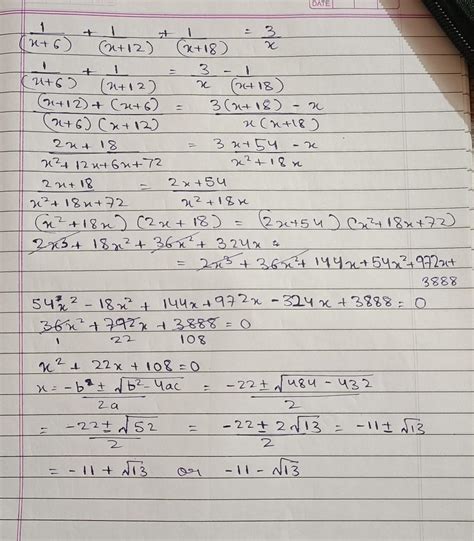 DATE
1/(x+6) + 1/(x+12) + 1/(x+18) = 3/x
1/(x+6) + 1/(x+12) = 3/x - 1/(x+18)
(x+12) + (x+6)/(x+6)(x+12) = 3(x+18) - x/x(x+18)
2x + 18/x²+12x+6x+72 = 3x+54 - x/x²+18x
2x+18/x²+18x+72 = 2x+54/x²+18x
(x²+18x)(2x+18) = (2x+54)(x²+18x+72)
2x³ + 18x² + 36x² + 324x
= 2x³ + 36x² + 144x + 54x² + 972x +
3888
54x² - 18x² + 144x + 972x - 324x + 3888 = 0
36x² + 792x + 3888 = 0
1 22 108
x² + 22x + 108 = 0
x = -b ± √b²-4ac/2a = -22 ± √484 - 432/2
= -22 ± √52/2 = -22 ± 2√13/2 = -11 ± √13
= -11 + √13 or -11 - √13